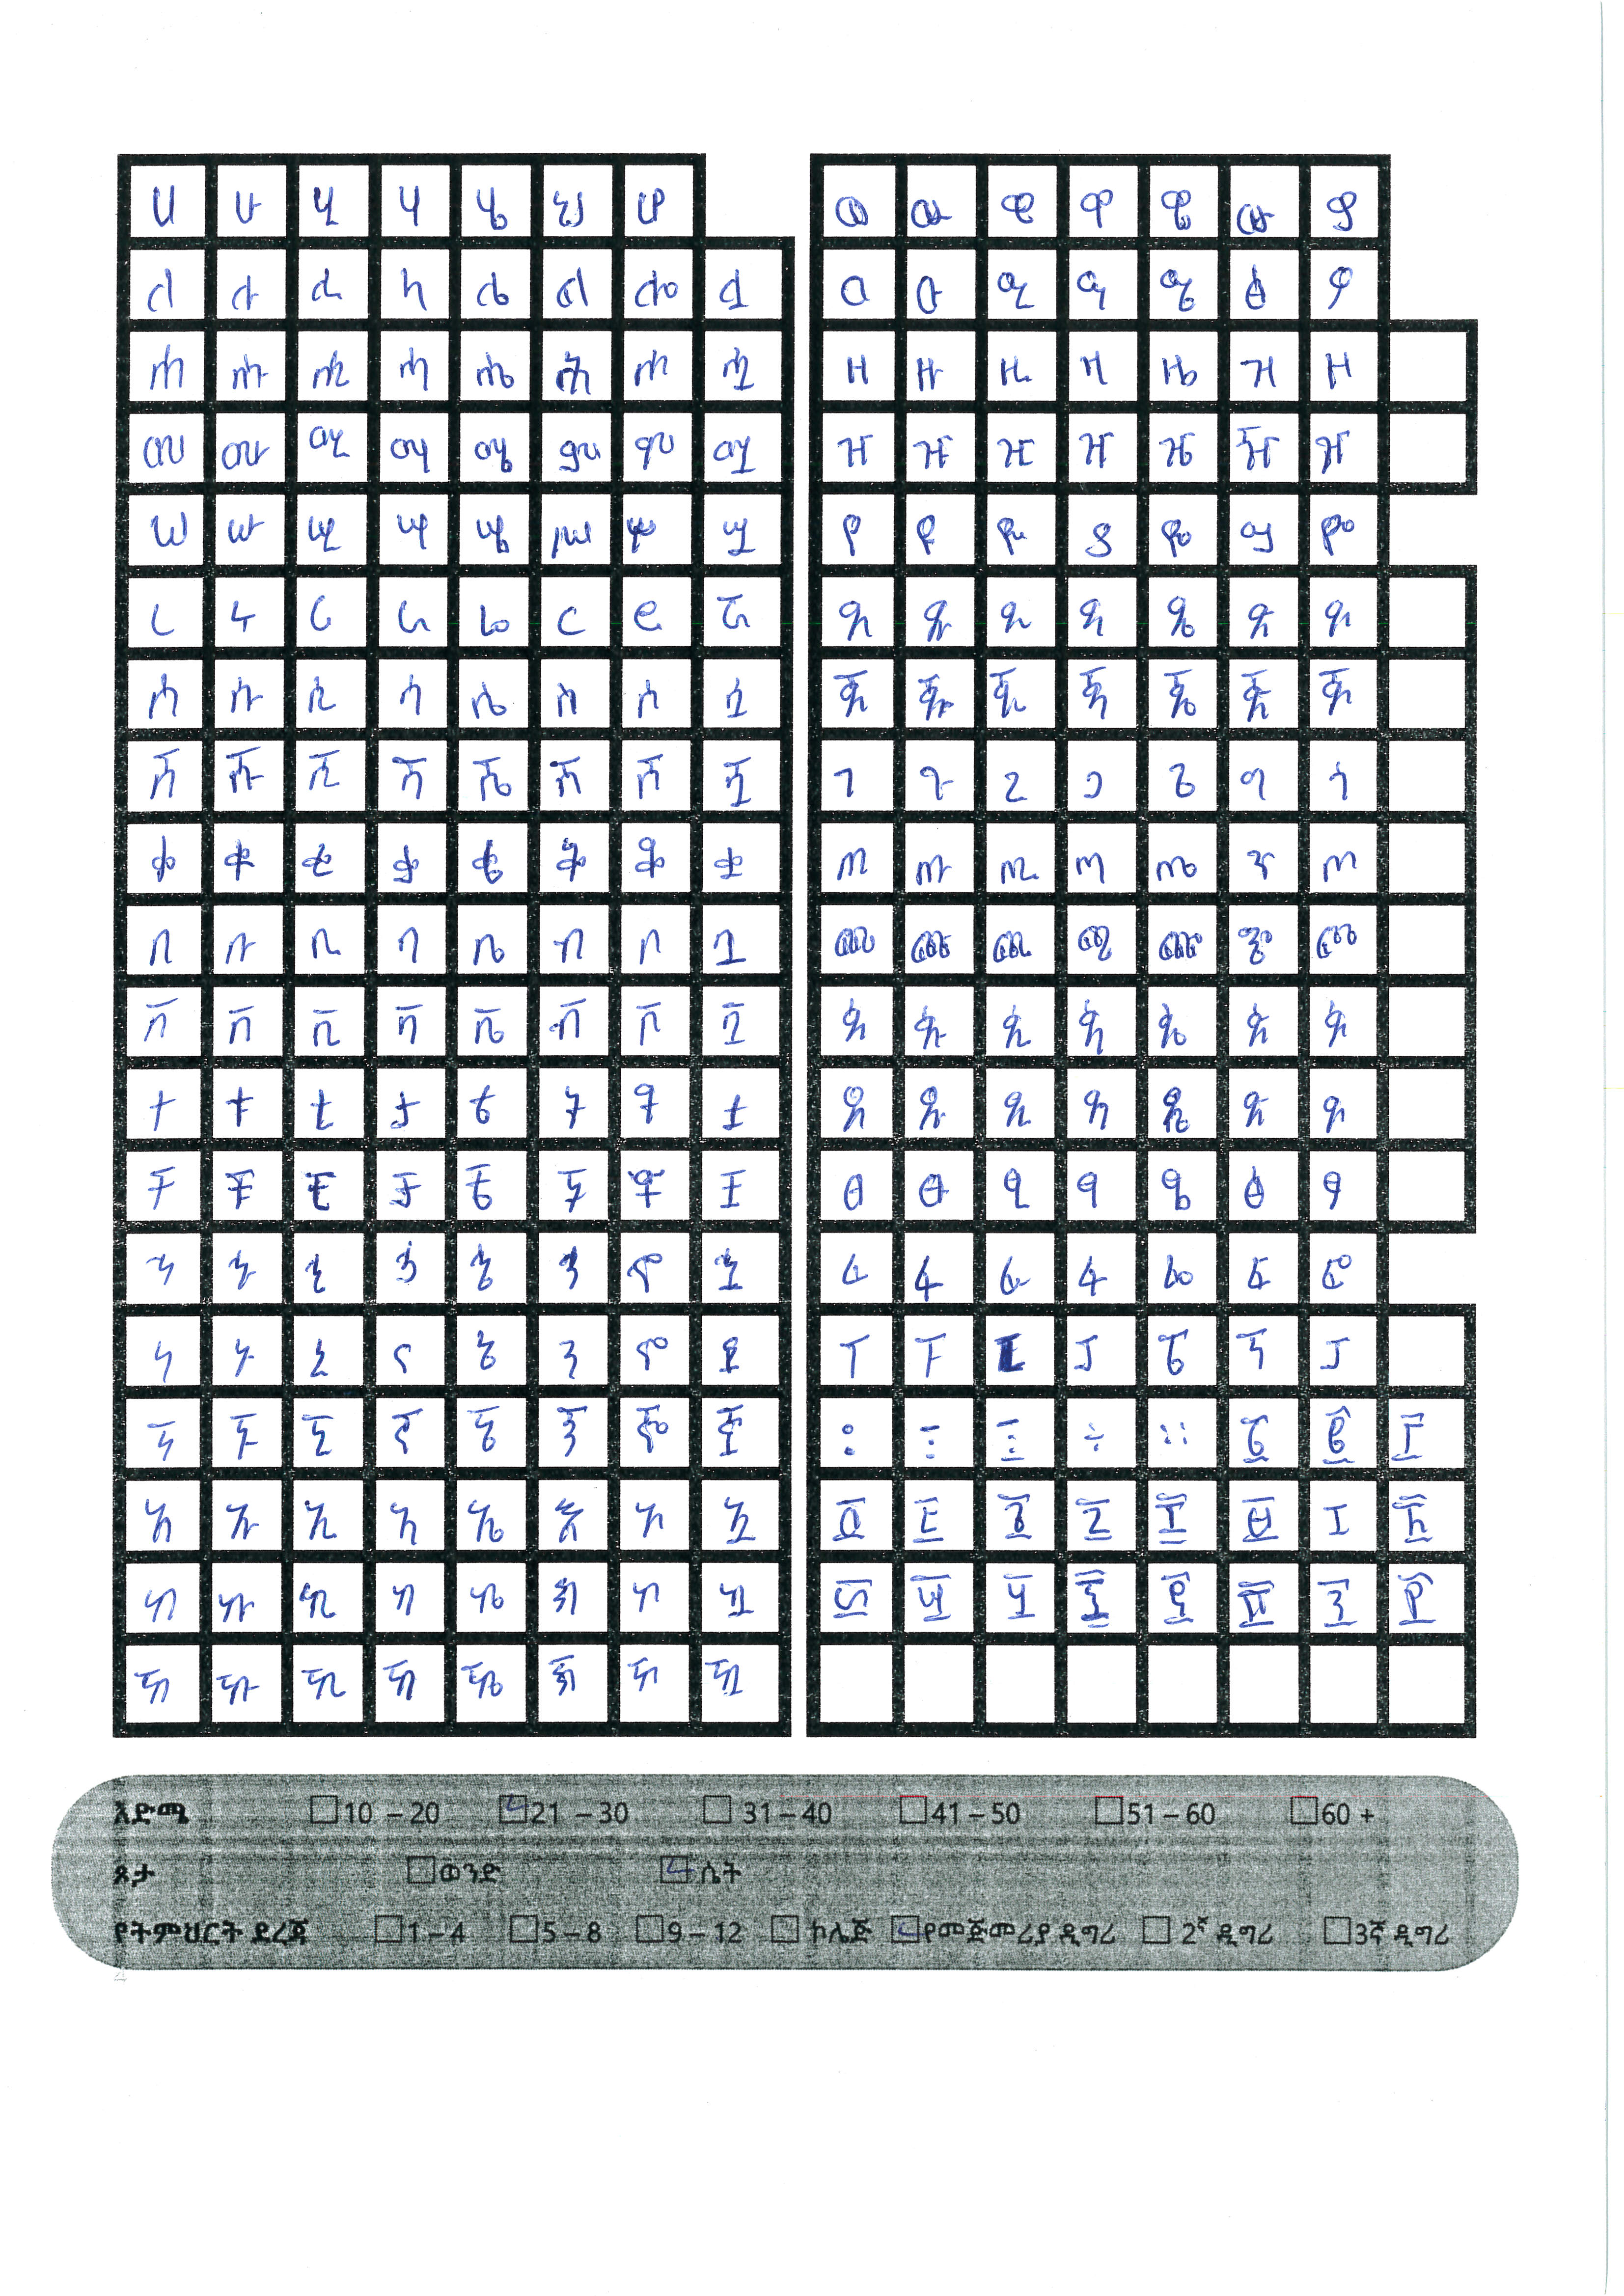 ሀ ሁ ሂ ሃ ሄ ህ ሆ
ለ ሉ ሊ ላ ሌ ል ሎ ሏ
ሐ ሑ ሒ ሓ ሔ ሕ ሖ ሗ
መ ሙ ሚ ማ ሜ ም ሞ ሟ
ሠ ሡ ሢ ሣ ሤ ሥ ሦ ሧ
ረ ሩ ሪ ራ ሬ ር ሮ ሯ
ሰ ሱ ሲ ሳ ሴ ስ ሶ ሷ
ሸ ሹ ሺ ሻ ሼ ሽ ሾ ሿ
ቀ ቁ ቂ ቃ ቄ ቅ ቆ ቋ
በ ቡ ቢ ባ ቤ ብ ቦ ቧ
ቨ ቩ ቪ ቫ ቬ ቭ ቮ ቯ
ተ ቱ ቲ ታ ቴ ት ቶ ቷ
ቸ ቹ ቺ ቻ ቼ ች ቾ ቿ
ኀ ኁ ኂ ኃ ኄ ኅ ኆ ኋ
ነ ኑ ኒ ና ኔ ን ኖ ኗ
ኘ ኙ ኚ ኛ ኜ ኝ ኞ ኟ
አ ኡ ኢ ኣ ኤ እ ኦ ኧ
ከ ኩ ኪ ካ ኬ ክ ኮ ኳ
ኸ ኹ ኺ ኻ ኼ ኽ ኾ ዃ
ወ ዉ ዊ ዋ ዌ ው ዎ
ዐ ዑ ዒ ዓ ዔ ዕ ዖ
ዘ ዙ ዚ ዛ ዜ ዝ ዞ
ዠ ዡ ዢ ዣ ዤ ዥ ዦ
የ ዩ ዪ ያ ዬ ይ ዮ
ደ ዱ ዲ ዳ ዴ ድ ዶ
ጀ ጁ ጂ ጃ ጄ ጅ ጆ
ገ ጉ ጊ ጋ ጌ ግ ጎ
ጠ ጡ ጢ ጣ ጤ ጥ ጦ
ጨ ጩ ጪ ጫ ጬ ጭ ጮ
ጰ ጱ ጲ ጳ ጴ ጵ ጶ
ጸ ጹ ጺ ጻ ጼ ጽ ጾ
ፀ ፁ ፂ ፃ ፄ ፅ ፆ
ፈ ፉ ፊ ፋ ፌ ፍ ፎ
ፐ ፑ ፒ ፓ ፔ ፕ ፖ
፡ ፣ ፤ ÷ ። ፩ ፪ ፫
፬ ፭ ፮ ፯ ፰ ፱ ፲ ፳
፴ ፵ ፶ ፷ ፸ ፹ ፺ ፻
እድሜ 10 – 20 21 – 30 31 – 40 41 – 50 51 – 60 60 +
ጾታ ወንድ ሴት
የትምህርት ደረጃ 1 – 4 5 – 8 9 – 12 ኮሌጅ የመጀመሪያ ዲግሪ 2ኛ ዲግሪ 3ኛ ዲግሪ